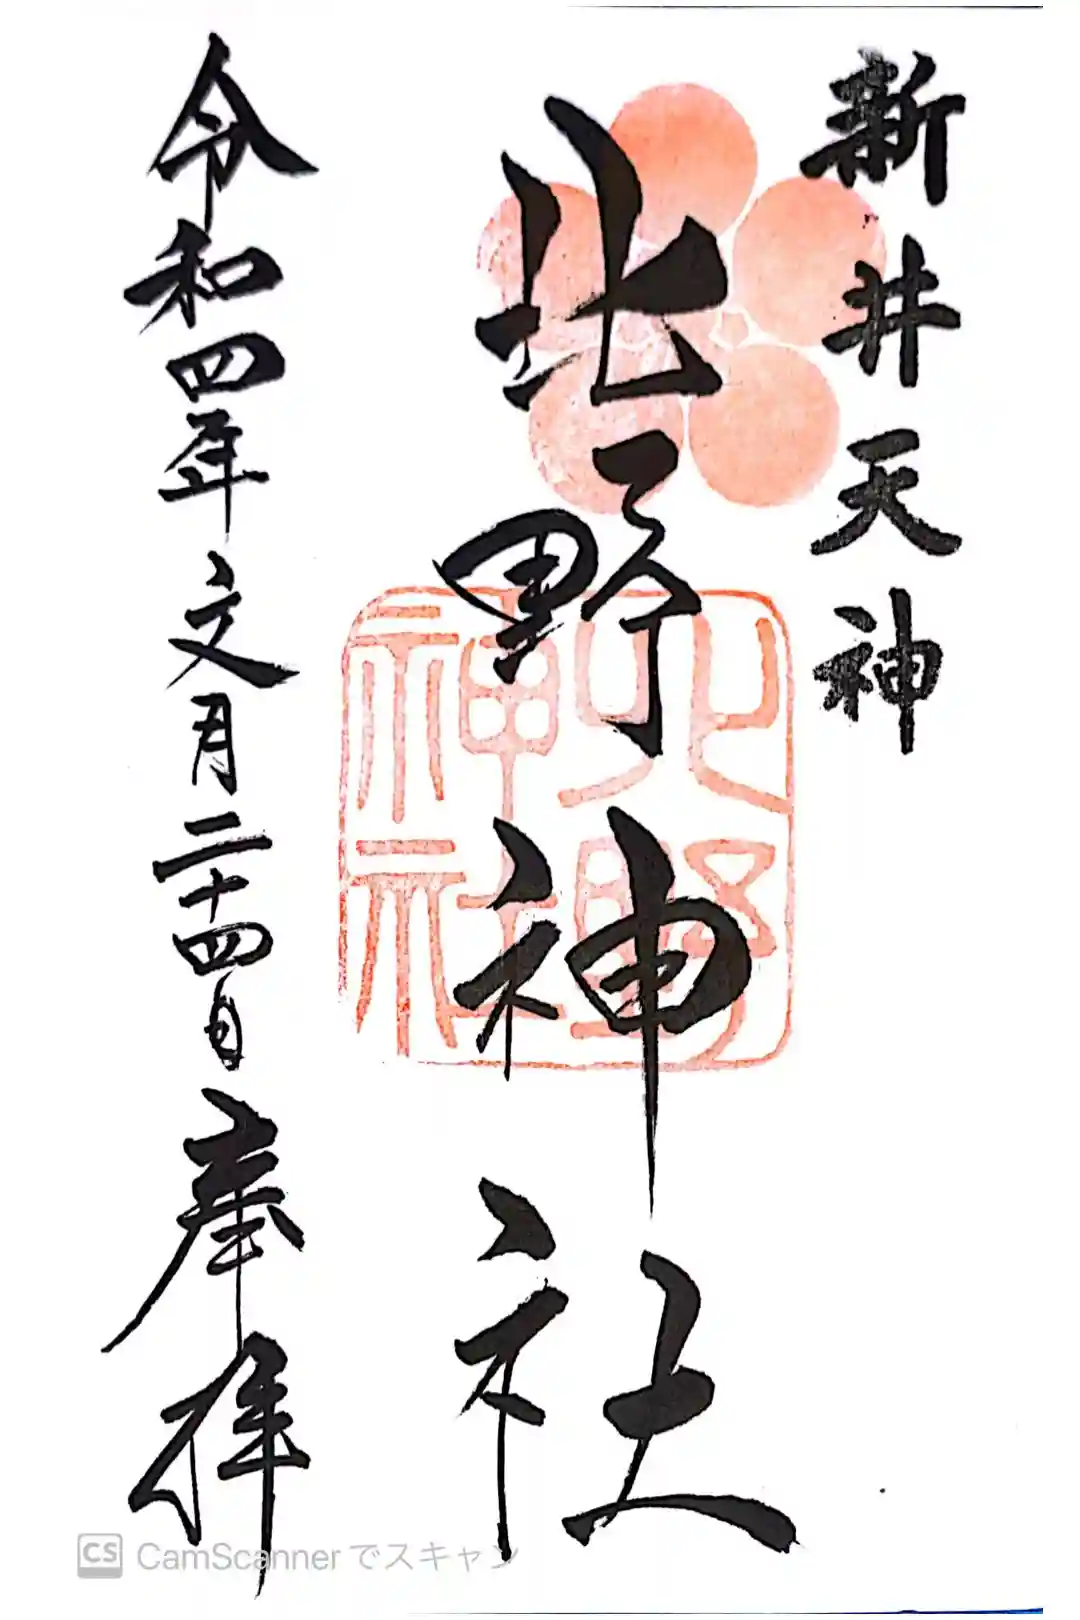 新井天神
北野神社
北野
神社
令和四年文月二十四日奉拝
CS CamScannerでスキャン